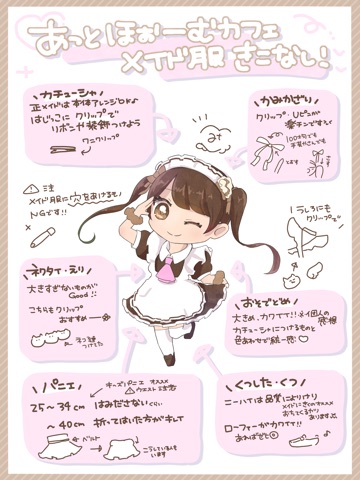 あっとほぉーむカフェ
メイド服 きこなし!
カチューシャ
正メイドは本体アレンジOK♪
はじっこに クリップで
リボンや装飾つけよう
ワニクリップ
かみかざり
クリップ・Uピンが
楽チンですてく
100均でも
手芸やさんでも
です
注
メイド服に穴をあけるも
NGです!!
うしろにも
クリップで
ネクタイ・えり
大きすぎないものが
Good!!
こちらもクリップ
おすすめ
おそでとめ
大きめ、カワイイ!!
カチューシャにつけるものと
色あわせで統一感♡
パニエ
キッズパニエ オススメ
ウエスト注意
25〜34cm はみださないくらい
〜40cm 折ってはいた方がキレイ
ベルト
こうしている人も
います
くつした・くつ
ニーハイは品質によりけり
ローファーがカワイイ!!
あればぜひ